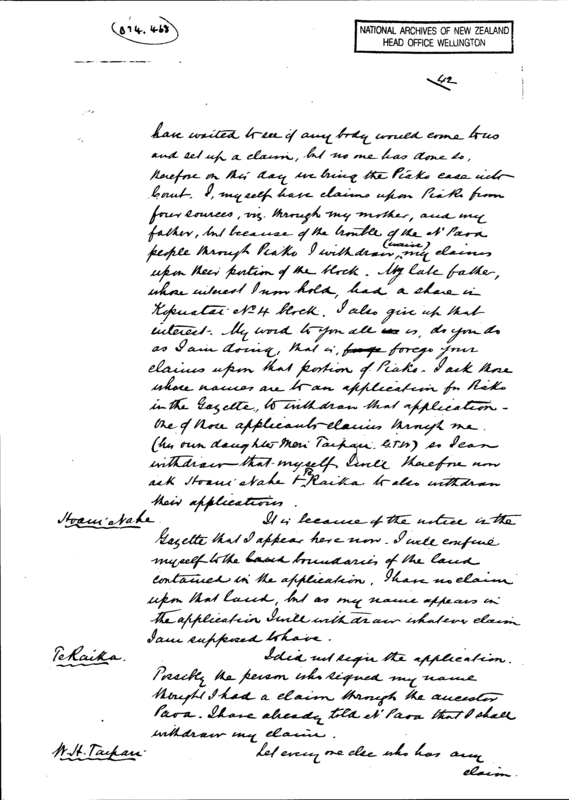 (B74. 468)
NATIONAL ARCHIVES OF NEW ZEALAND
HEAD OFFICE WELLINGTON
42
have waited to see if any body would come to us
and set up a claim, but no one has done so,
therefore on this day we bring the Piako case into
Court. I, myself have claims upon Piako from
four sources, viz. through my mother, and my
father, but because of the trouble of the N' Paoa
people through Piako I withdraw, (waive) my claims
upon their portion of the block. My late father,
whose interest I now hold, had a share in
Kopuatai No. 4 block. I also give up that
interest. My word to you all is, do you do
as I am doing, that is, forego your
claims upon that portion of Piako. I ask those
whose names are to an application for Piako
in the Gazette, to withdraw that application -
One of those applicants claims through me.
(his own daughter Meri Taipari. G.T.W) so I can
withdraw that myself. I will therefore now
ask Hoani Nahe & Te Raika to also withdraw
their applications.
Hoani Nahe. It is because of the notice in the
Gazette that I appear here now. I will confine
myself to the boundaries of the land
contained in the application. I have no claim
upon that land, but as my name appears in
the application I will withdraw whatever claim
I am supposed to have.
Te Raika. I did not sign the application.
Possibly the person who signed my name
thought I had a claim through the ancestor
Paoa. I have already told N' Paoa that I shall
withdraw my claim.
W. H. Taipari. Let every one else who has any
claim.